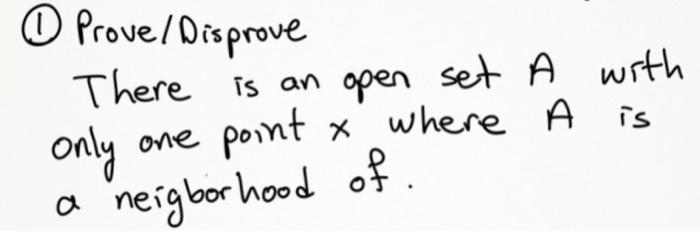 ① Prove/Disprove
There is an open set A with
only one point x where A is
a neigborhood of.